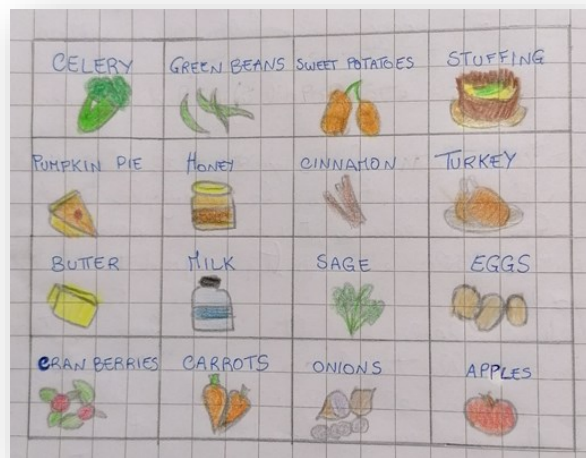 CELERY
GREEN BEANS
SWEET POTATOES
STUFFING
PUMPKIN PIE
HONEY
CINNAMON
TURKEY
BUTTER
MILK
SAGE
EGGS
CRAN BERRIES
CARROTS
ONIONS
APPLES